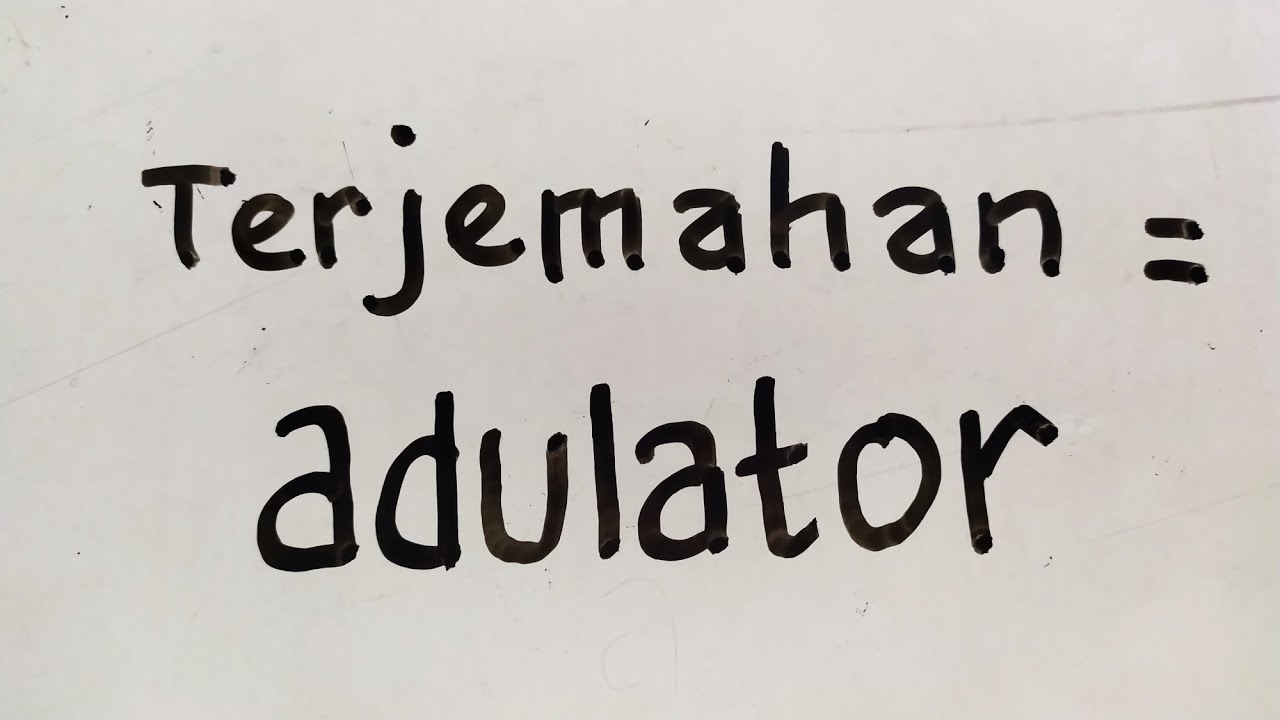 Terjemahan =
adulator